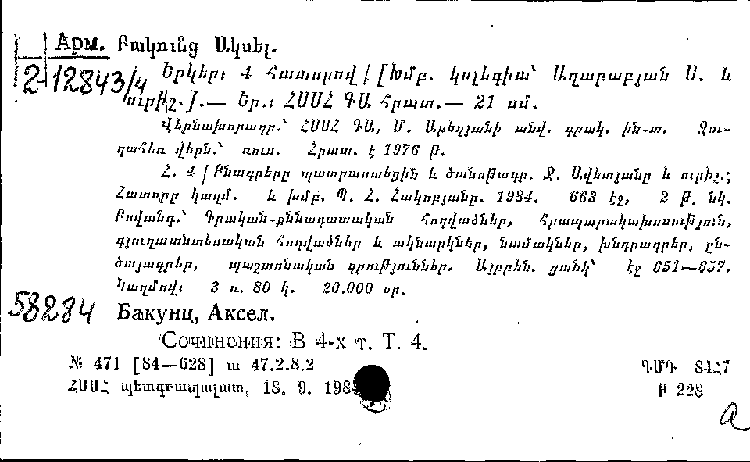 Арм. Բակունց Ակսել.
2-12843/4 Երկեր: 4 Հատորով / [Խմբ. կոլեգիա՝ Աղաբաբյան Ս. և
ուրիշ.].— Եր.: ՀՍՍՀ ԳԱ Հրատ.— 21 սմ.
Վերնախորագր.՝ ՀՍՍՀ ԳԱ, Մ. Աբեղյանի անվ. գրակ. ին-տ. Զու-
գահեռ վերն.՝ ռուս. Հրատ. է 1976 թ.
Հ. 4 / Բնագրերը պատրաստեցին և ծանոթագր. Ջ. Ավետյանը և ուրիշ.;
Հատորը կազմ. և խմբ. Պ. Հ. Հակոբյանը. 1984. 663 էջ, 2 թ. նկ.
Բովանդ.՝ Գրական-քննադատական հոդվածներ, Հրապարակախոսություն,
գյուղատնտեսական հոդվածներ և ակնարկներ, նամակներ, խնդրագրեր, ըն-
ծայագրեր, պաշտոնական գրություններ. Այբբեն. ցանկ՝ էջ 651—657.
Կազմով: 3 ռ. 80 կ. 20.000 օր.
58284 Бакунц, Аксел.
Сочинения: В 4-х т. Т. 4.
№ 471 [84—628] ա 47.2.8.2 ԳՄԴ 84Հ7
ՀՍՍՀ պետգրապալատ, 13. 9. 198 Բ 228
a